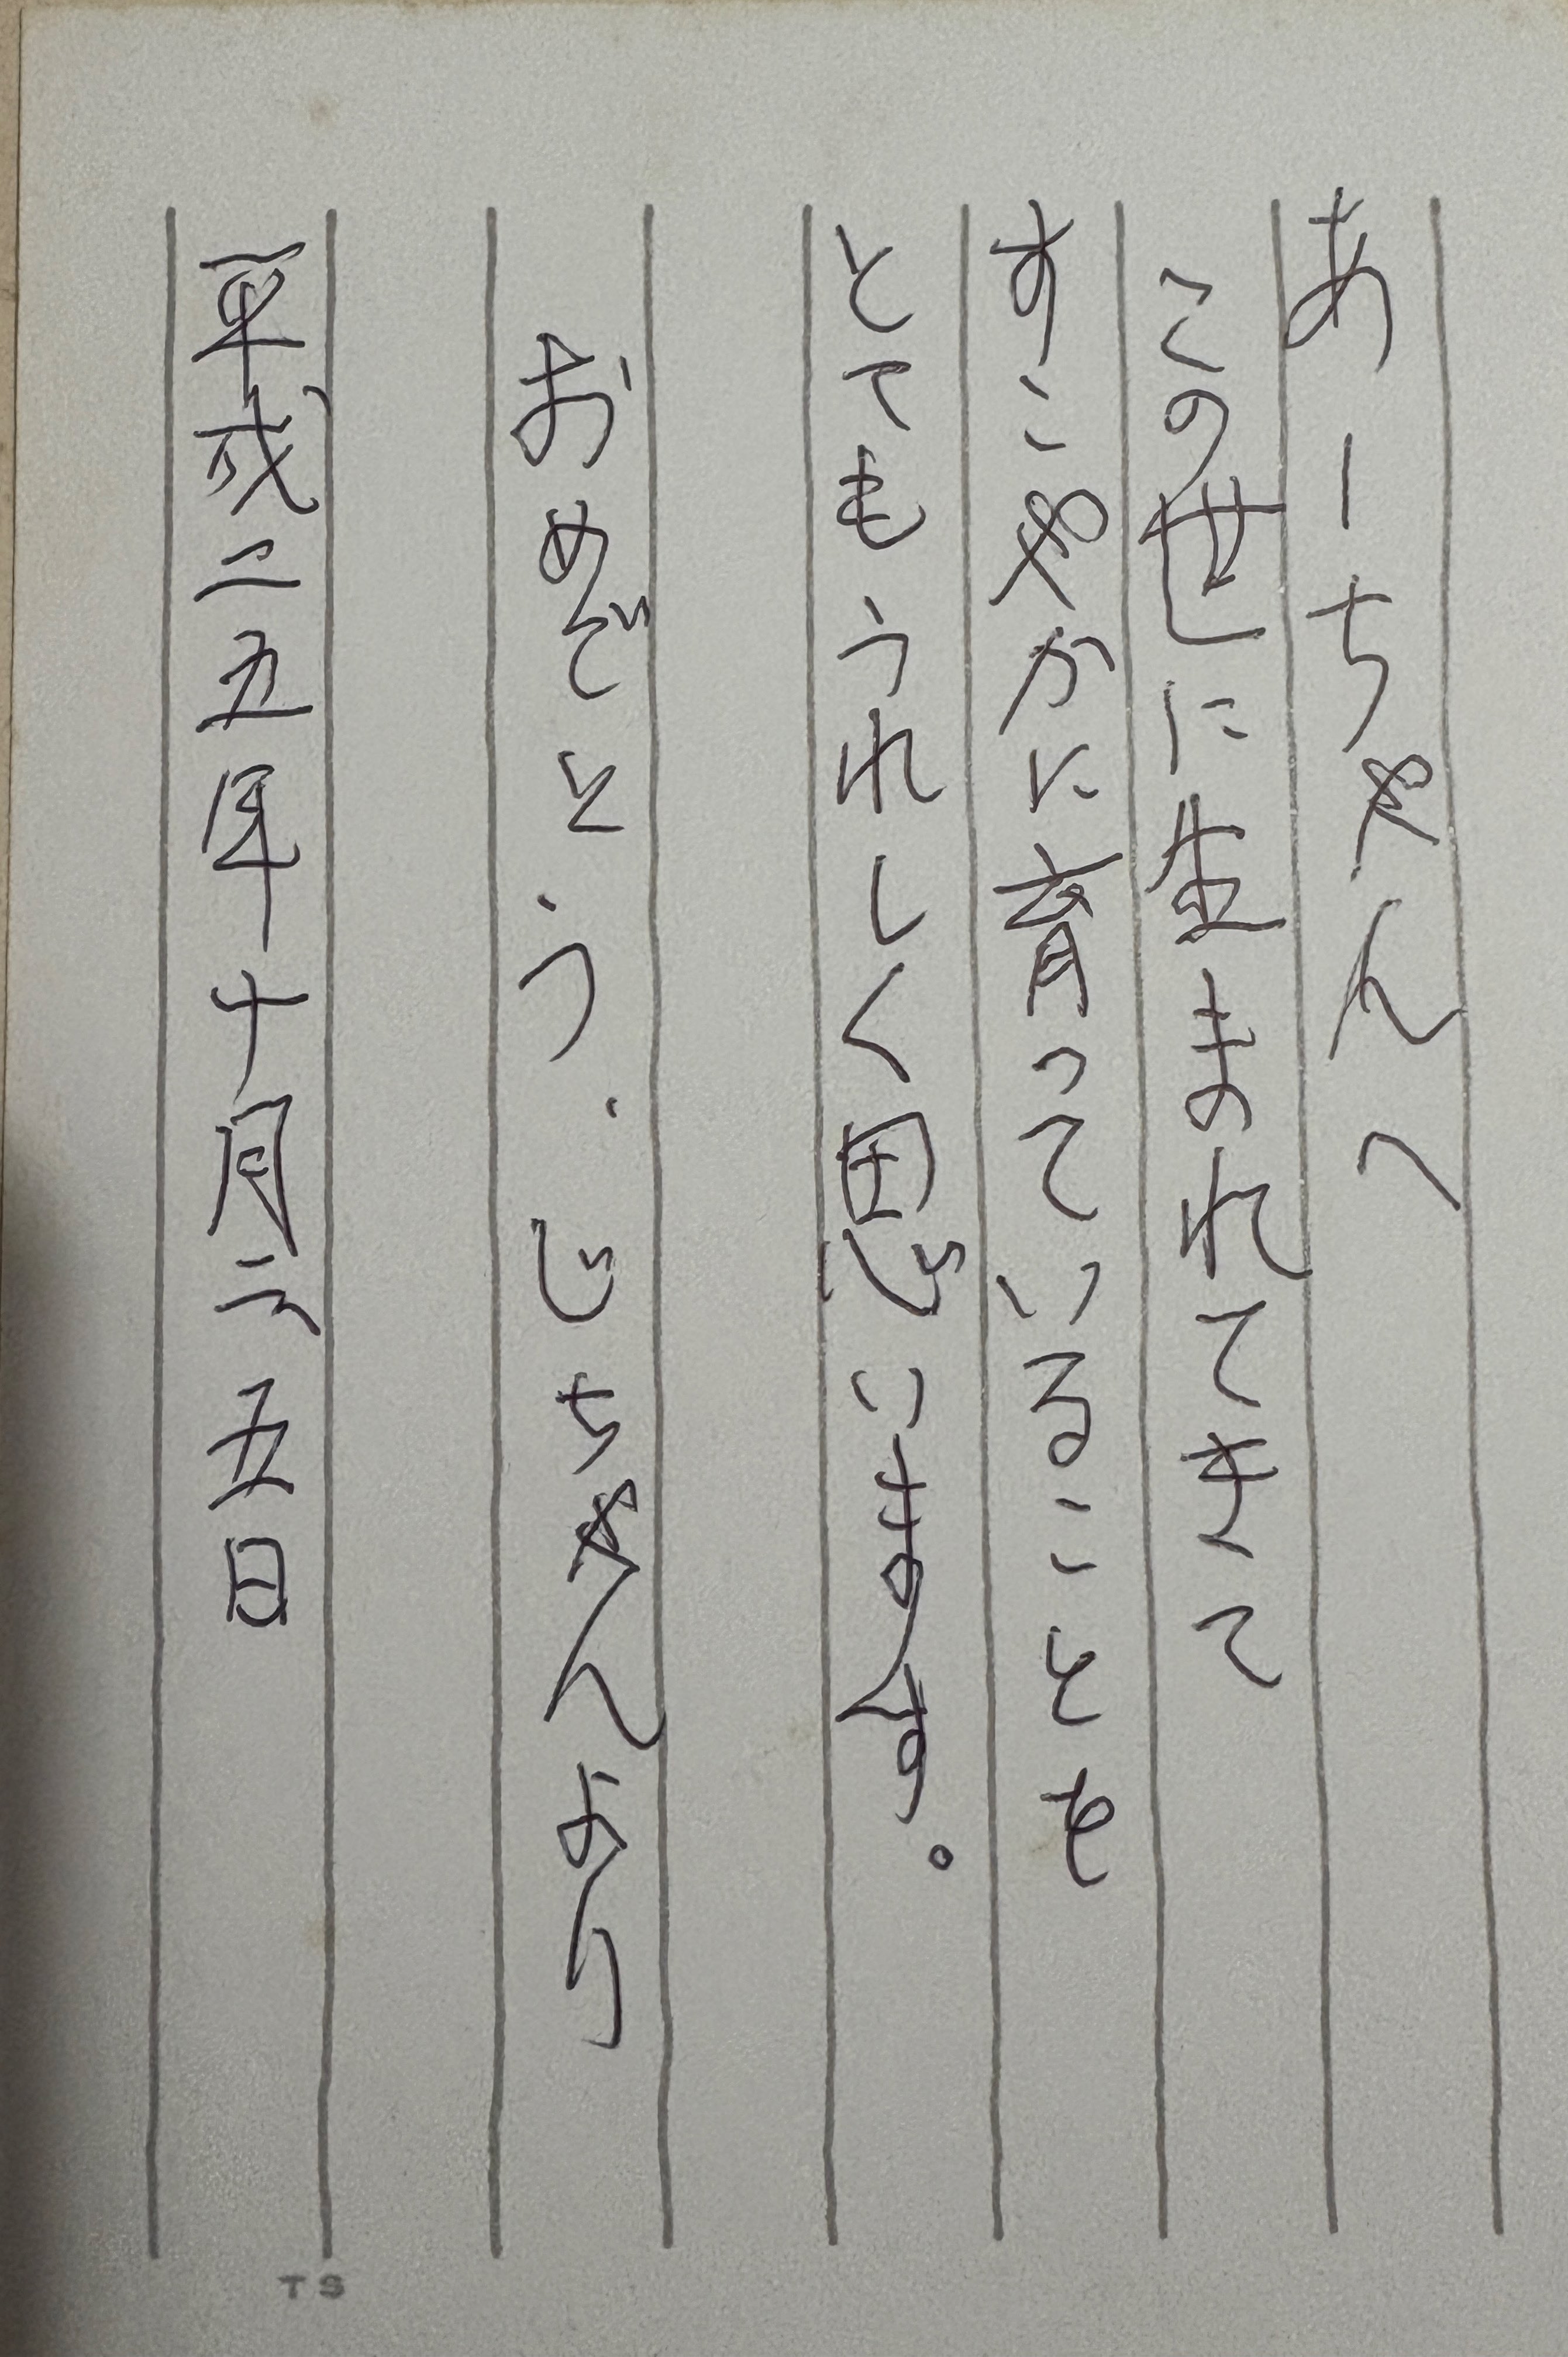 あーちゃんへ
この世に生まれてきて
すこやかに育っていることを
とてもうれしく思います。
おめでとう.じちゃんより
平成二五年十月二五日
TS